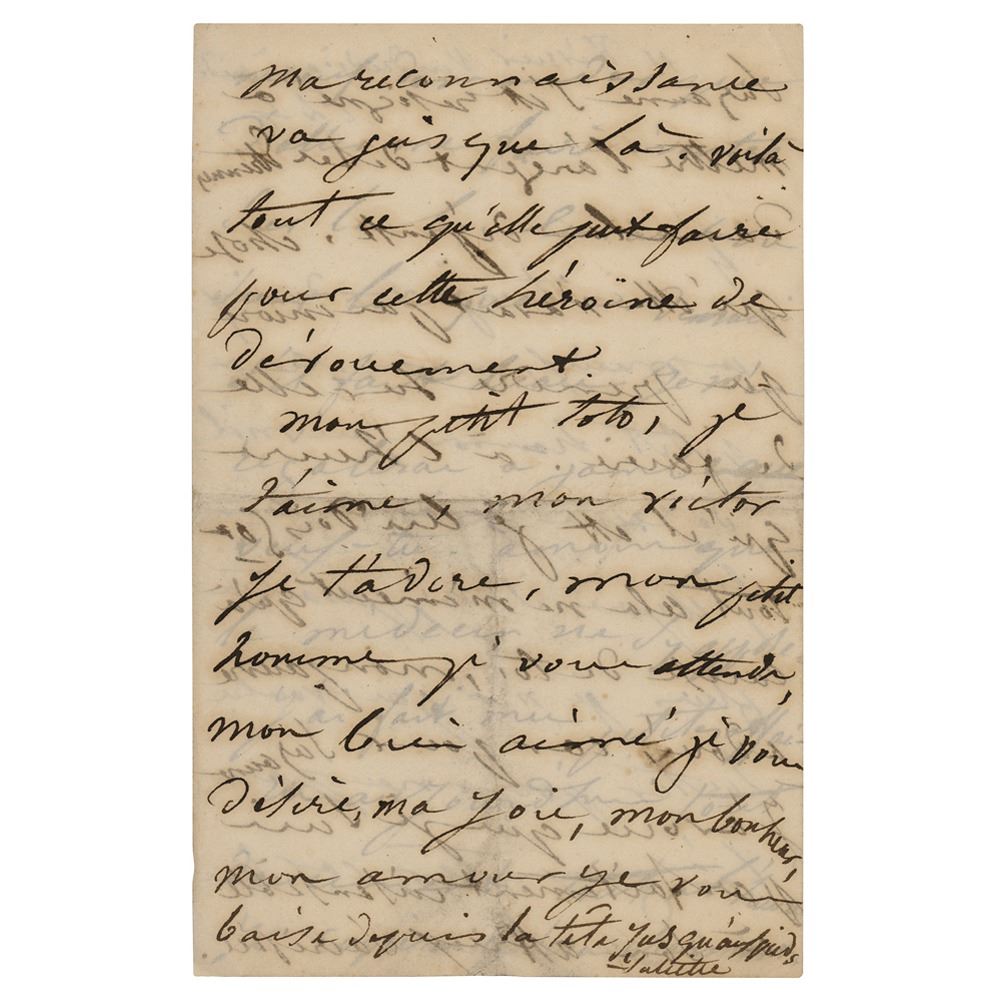 ma reconnaissance
va jusque là. voilà
tout ce qu'elle peut faire
pour cette héroïne de
dévouement.
mon petit toto, je
t'aime, mon victor
je t'adore, mon petit
homme je vous attends,
mon bien aimé je vous
désire, ma joie, mon bonheur,
mon amour je vous
baise depuis la tête jusqu'aux pieds
Juliette